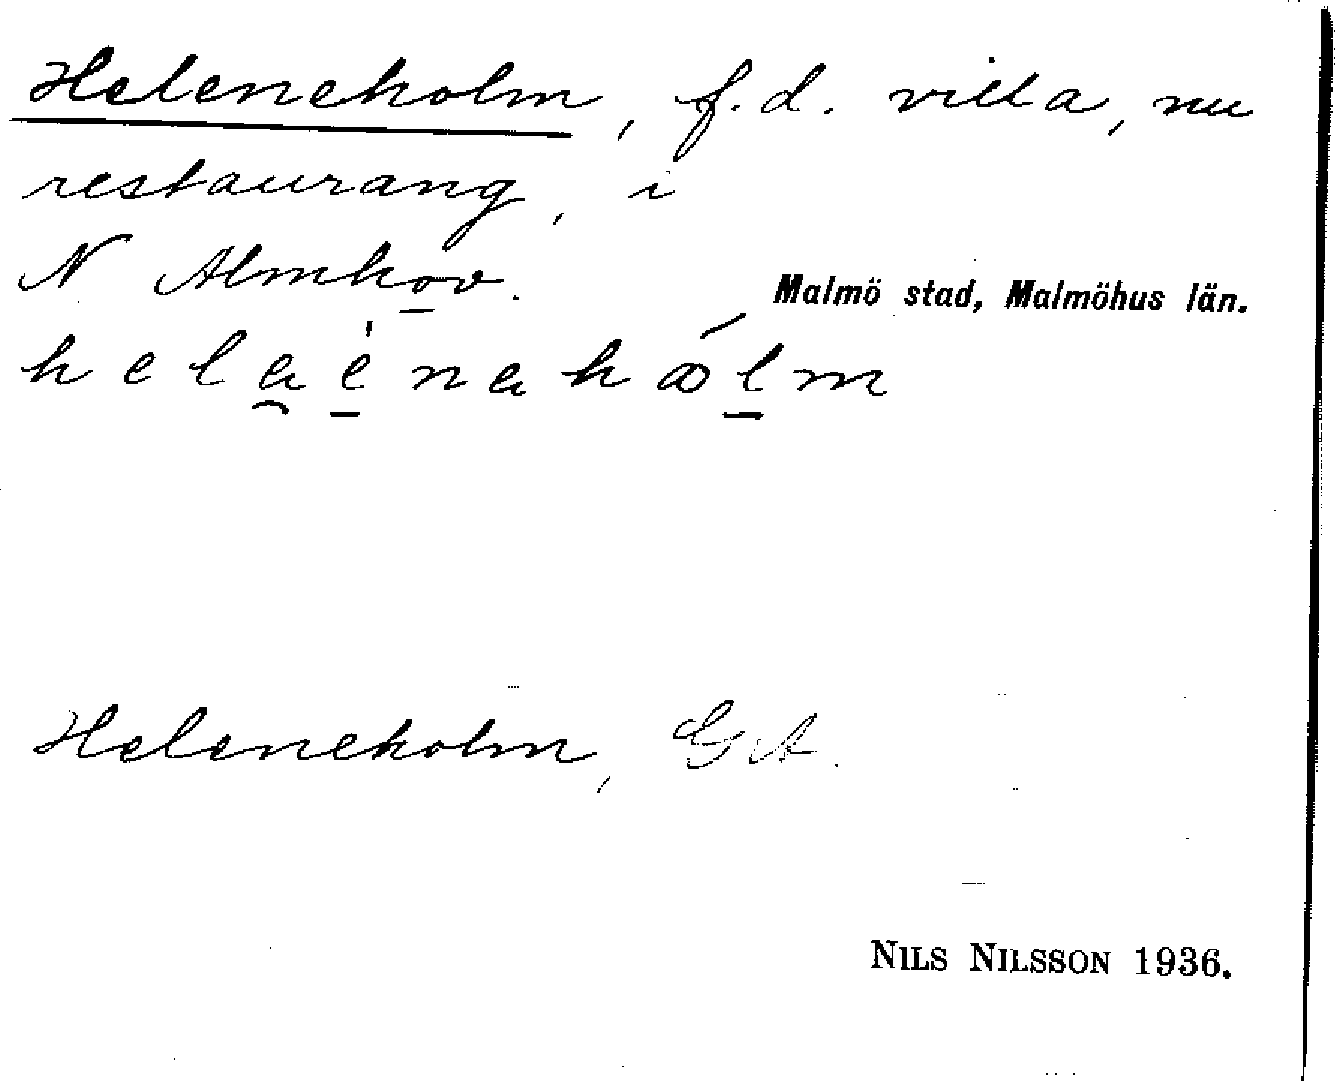 Heleneholm, f.d. villa, nu
restaurang, i
N Almhov.
Malmö stad, Malmöhus län.
Heleneholm, GA.
NILS NILSSON 1936.